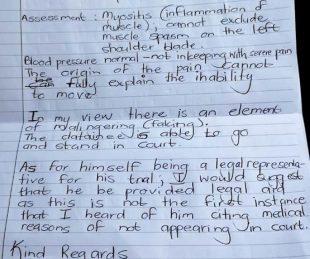 Assessment : Myositis (inflammation of
muscle), cannot exclude
muscle spasm on the left
shoulder blade.
Blood pressure normal - not inkeeping with severe pain
The origin of the pain cannot
fully explain the inability
to move
In my view there is an element
of malingering (faking).
The detainee is able to go
and stand in court.
As for himself being a legal representa-
tive for his trial; I would suggest
that he be provided legal aid
as this is not the first instance
that I heard of him citing medical
reasons of not appearing in court.
Kind Regards